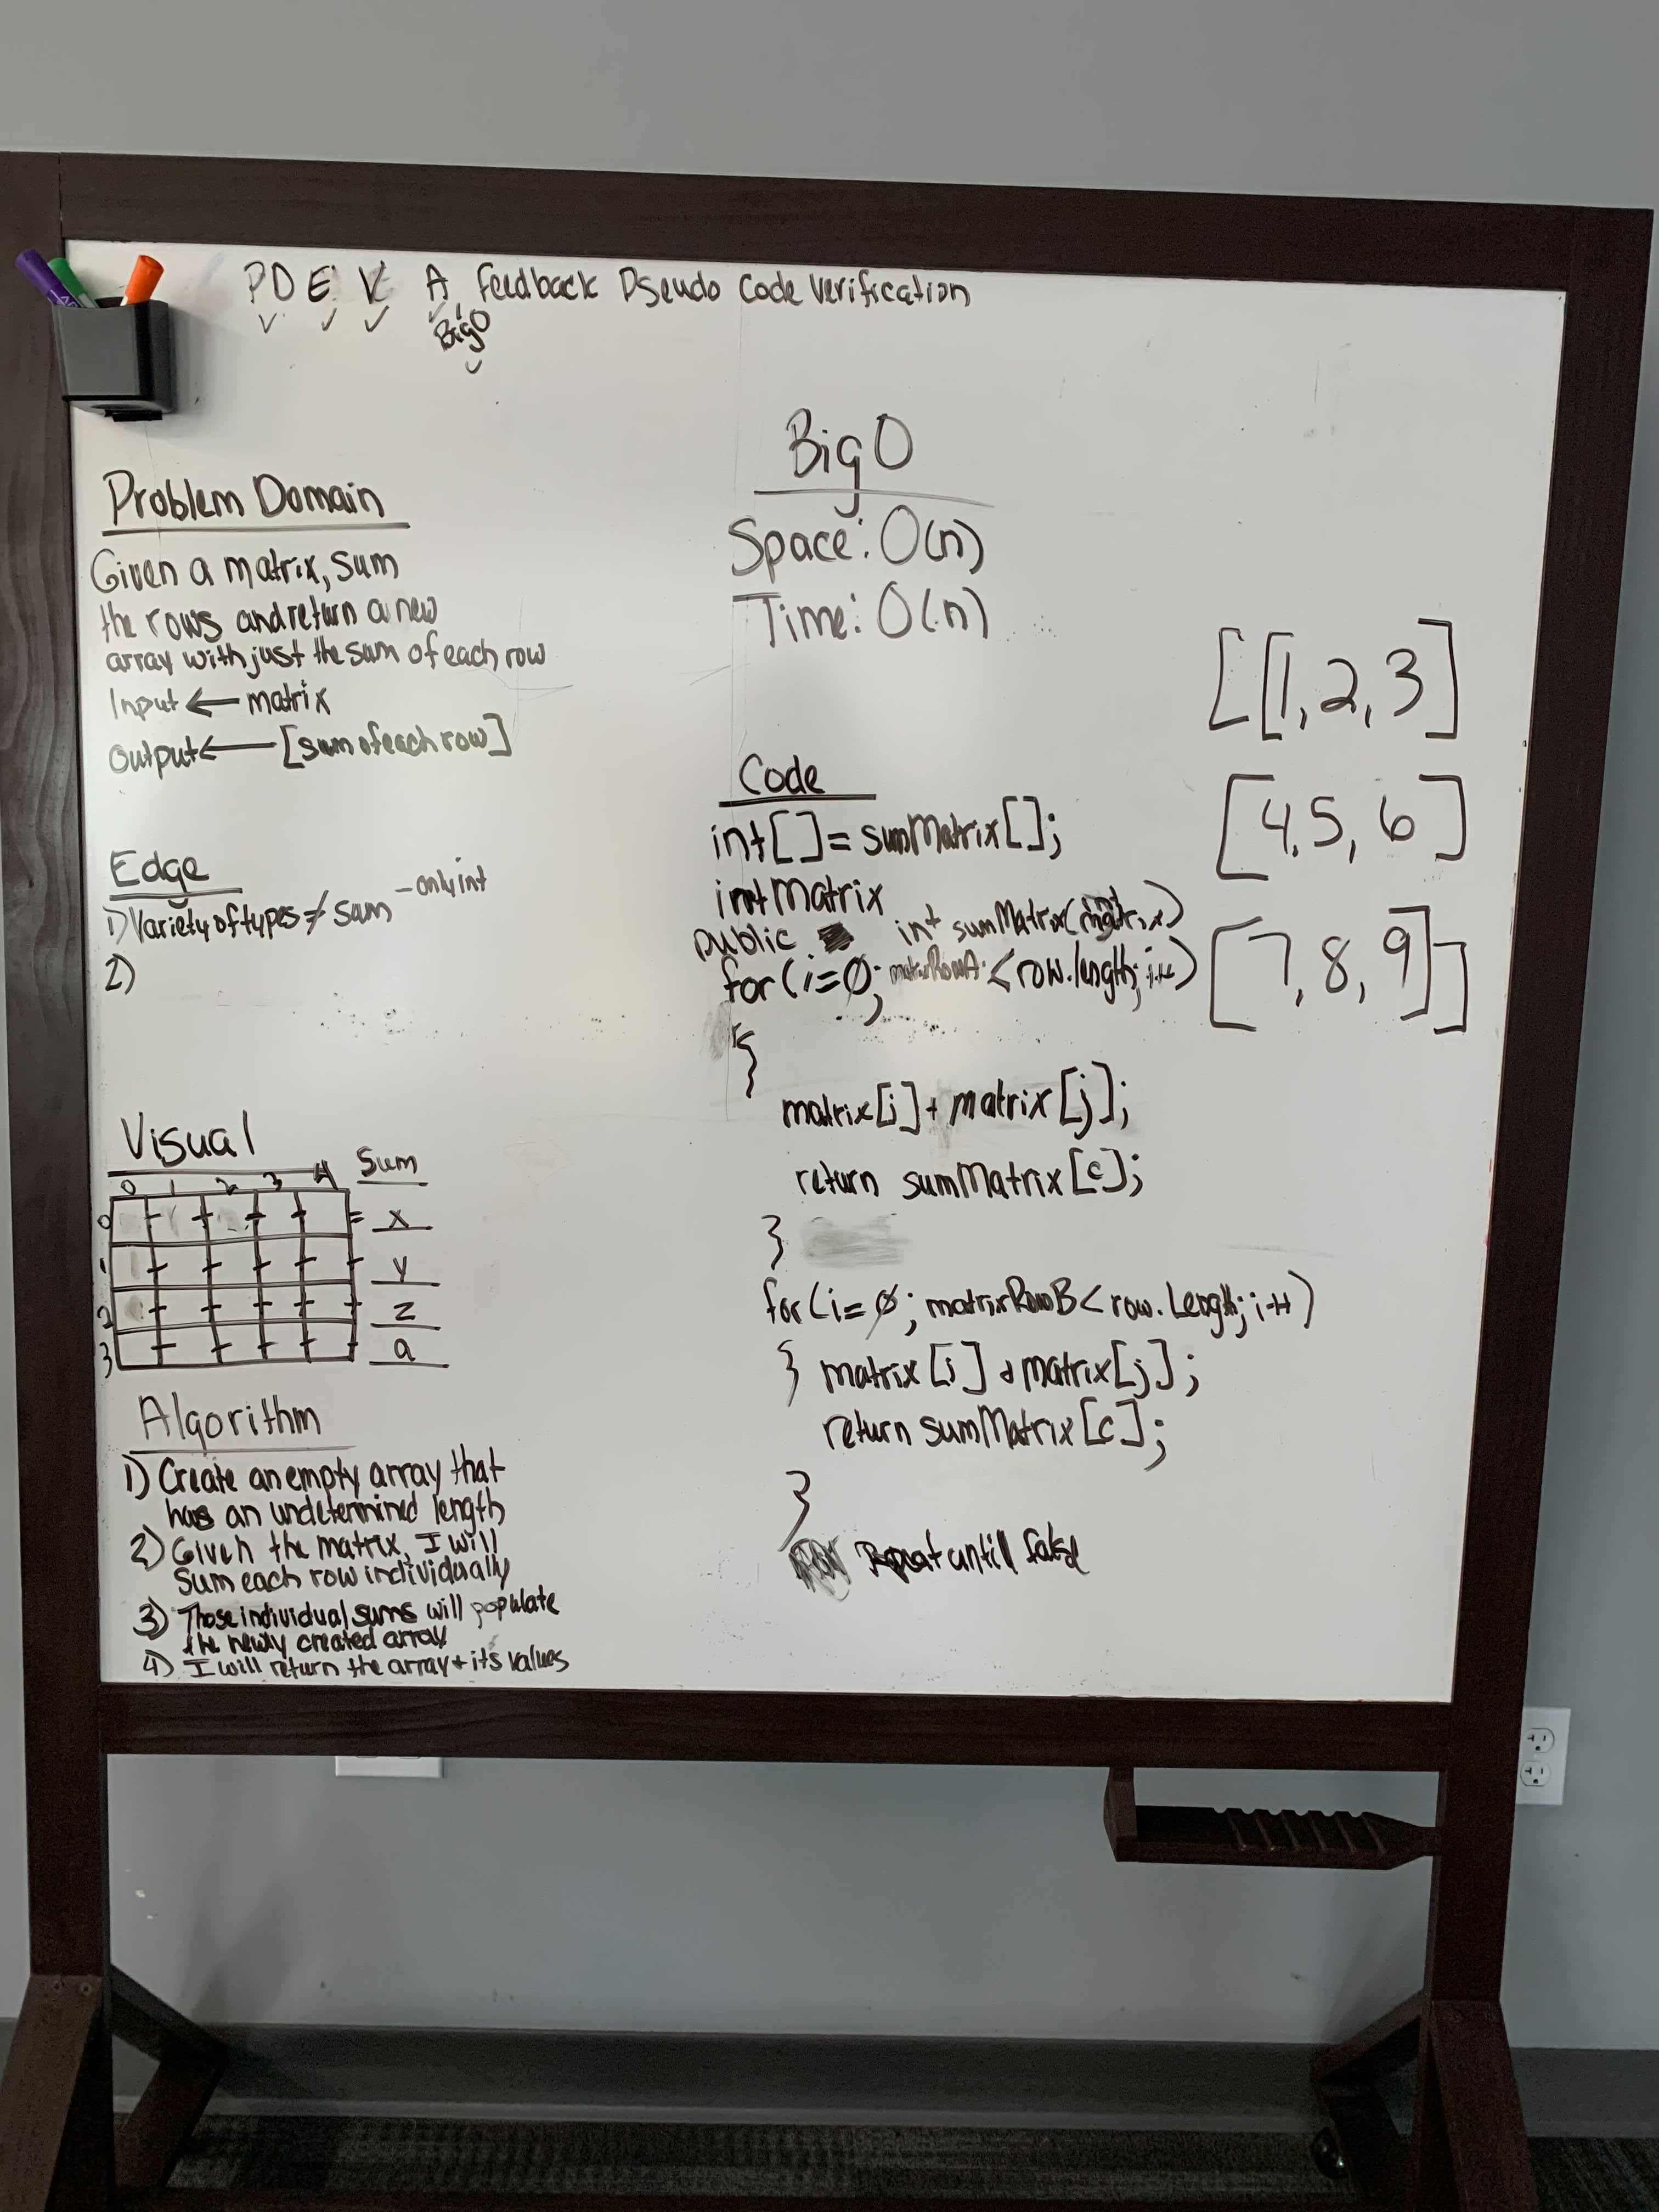 PD E V A Feedback Pseudo Code Verification
BigO
Problem Domain
Given a matrix, sum
the rows and return a new
array with just the sum of each row
Input ← matrix
Output ← [sum of each row]
Edge
1) Variety of types ≠ sum - only int
2)
Visual
Sum
0 1 2 3 4
0 = x
1 y
2 z
3 a
Algorithm
1) Create an empty array that
has an undetermined length
2) Given the matrix, I will
Sum each row individually
3) Those individual sums will populate
the newly created array
4) I will return the array + its values
Big O
Space: O(n)
Time: O(n)
Code
int[] = sumMatrix[];
int Matrix
public int sumMatrix(matrix)
for (i=0; matrixRowA < row.length; i++)
{
matrix[i] + matrix[j];
return sumMatrix[c];
}
for (i=0; matrixRowB < row.Length; i++)
{ matrix[i] + matrix[j];
return sumMatrix[c];
}
Repeat untill false
[[1, 2, 3]
[4, 5, 6]
[7, 8, 9]]